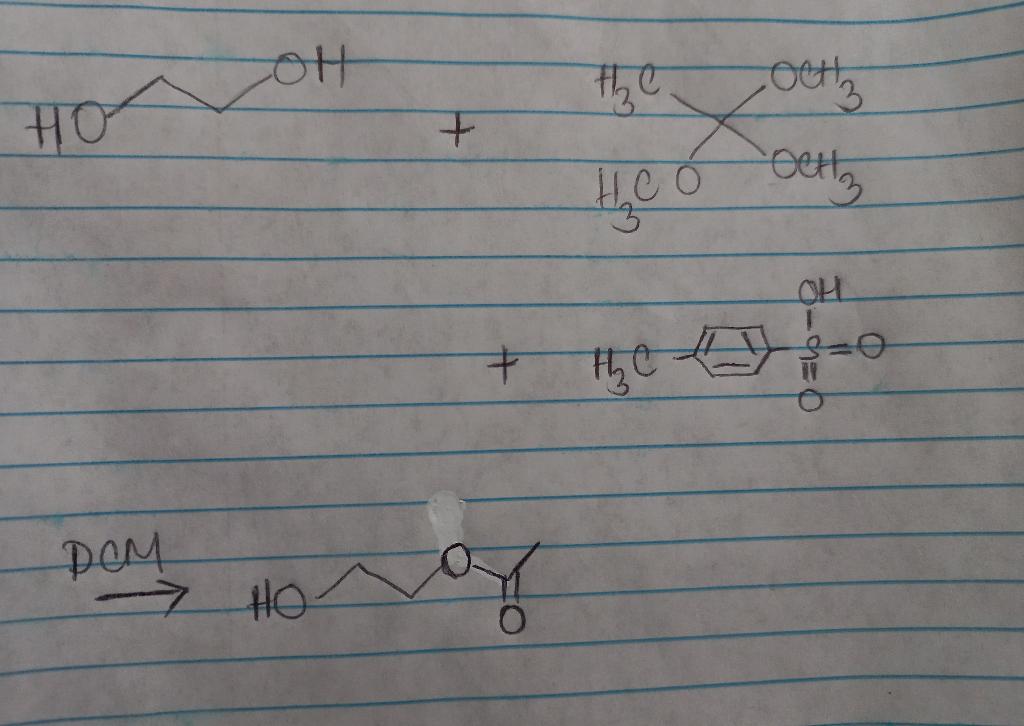 HO OH + H3C OCH3
H3CO OCH3
OH
+ H3C S=O
O
DCM
HO O
O